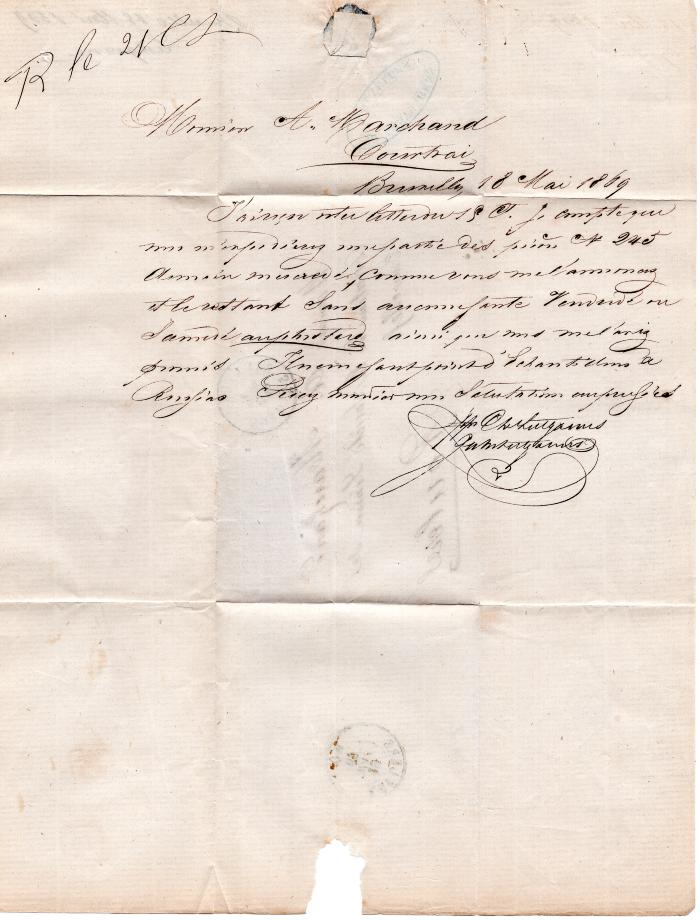 R le 21 Ct
Monsieur A. Marchand
Courtrai
Bruxelles, 18 Mai 1869
J'ai reçu votre lettre du 15 Ct. Je compte que
vous m'expédierez une partie des pièces N 245
demain mercredi, comme vous me l'annoncez
et le restant sans aucune faute Vendredi ou
Samedi au plus tard ainsi que vous me l'aviez
promis Il ne me faut point d'échantillons de
Recevez monsieur mes Salutations empressées